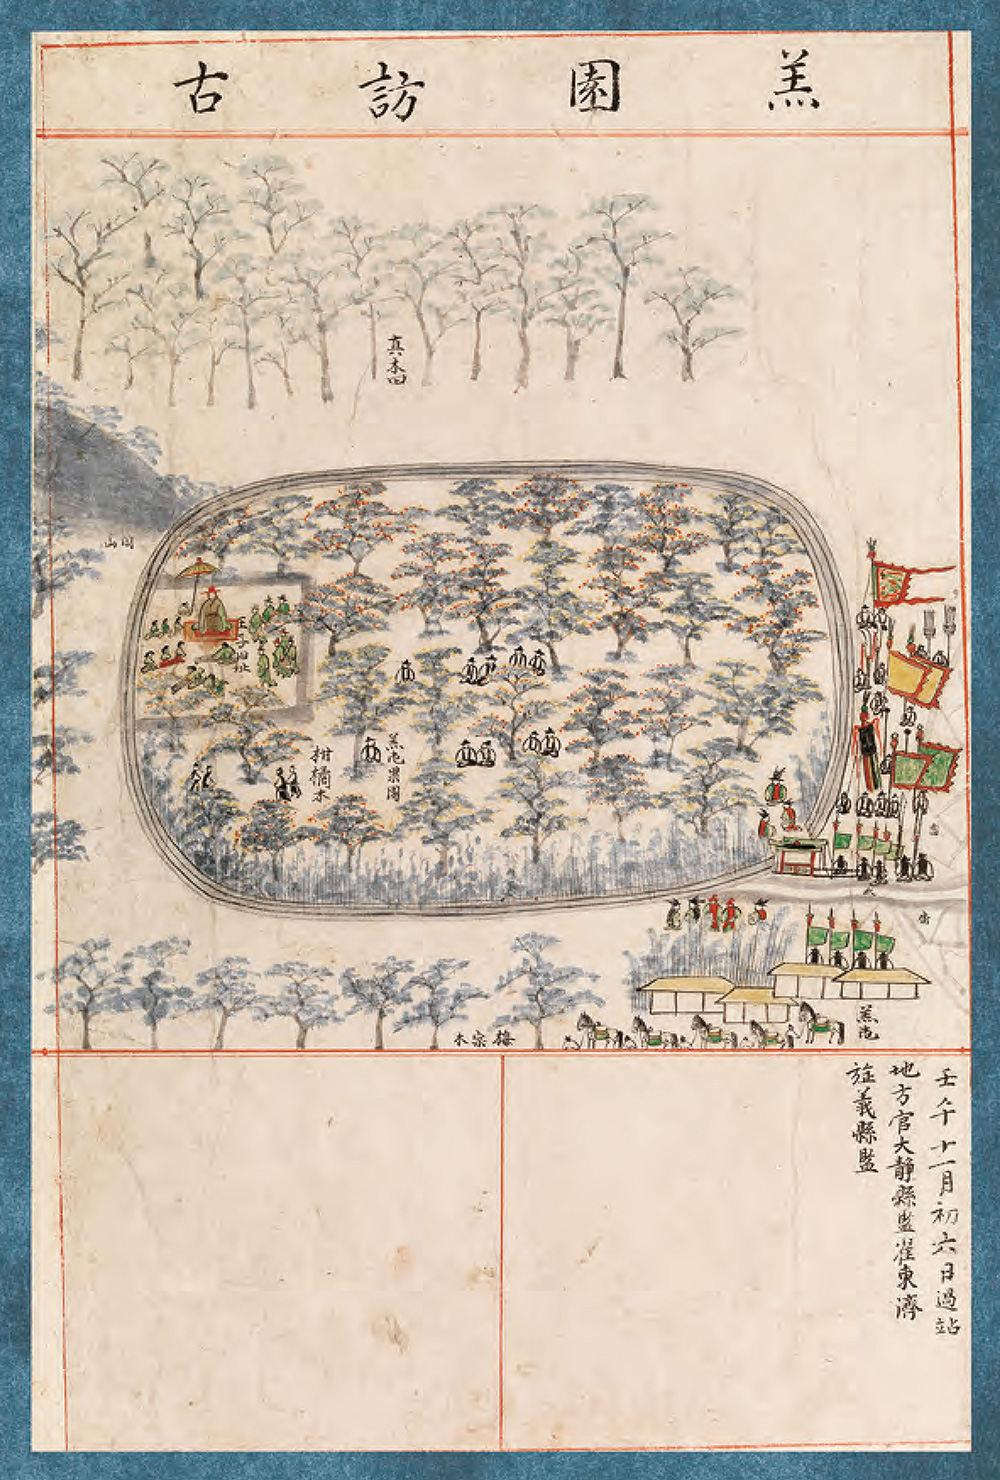 羔園訪古
真木田
王子旧址
柑橘木
羔屯果園
羔屯
壬午十一月初六日過站
地方官大静縣監崔東濟
旌義縣監